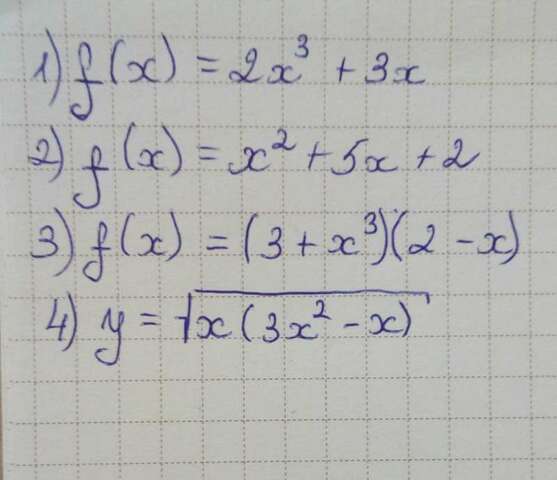 1) f(x) = 2x³ + 3x
2) f(x) = x² + 5x + 2
3) f(x) = (3 + x³)(2 - x)
4) y = √x(3x² - x)